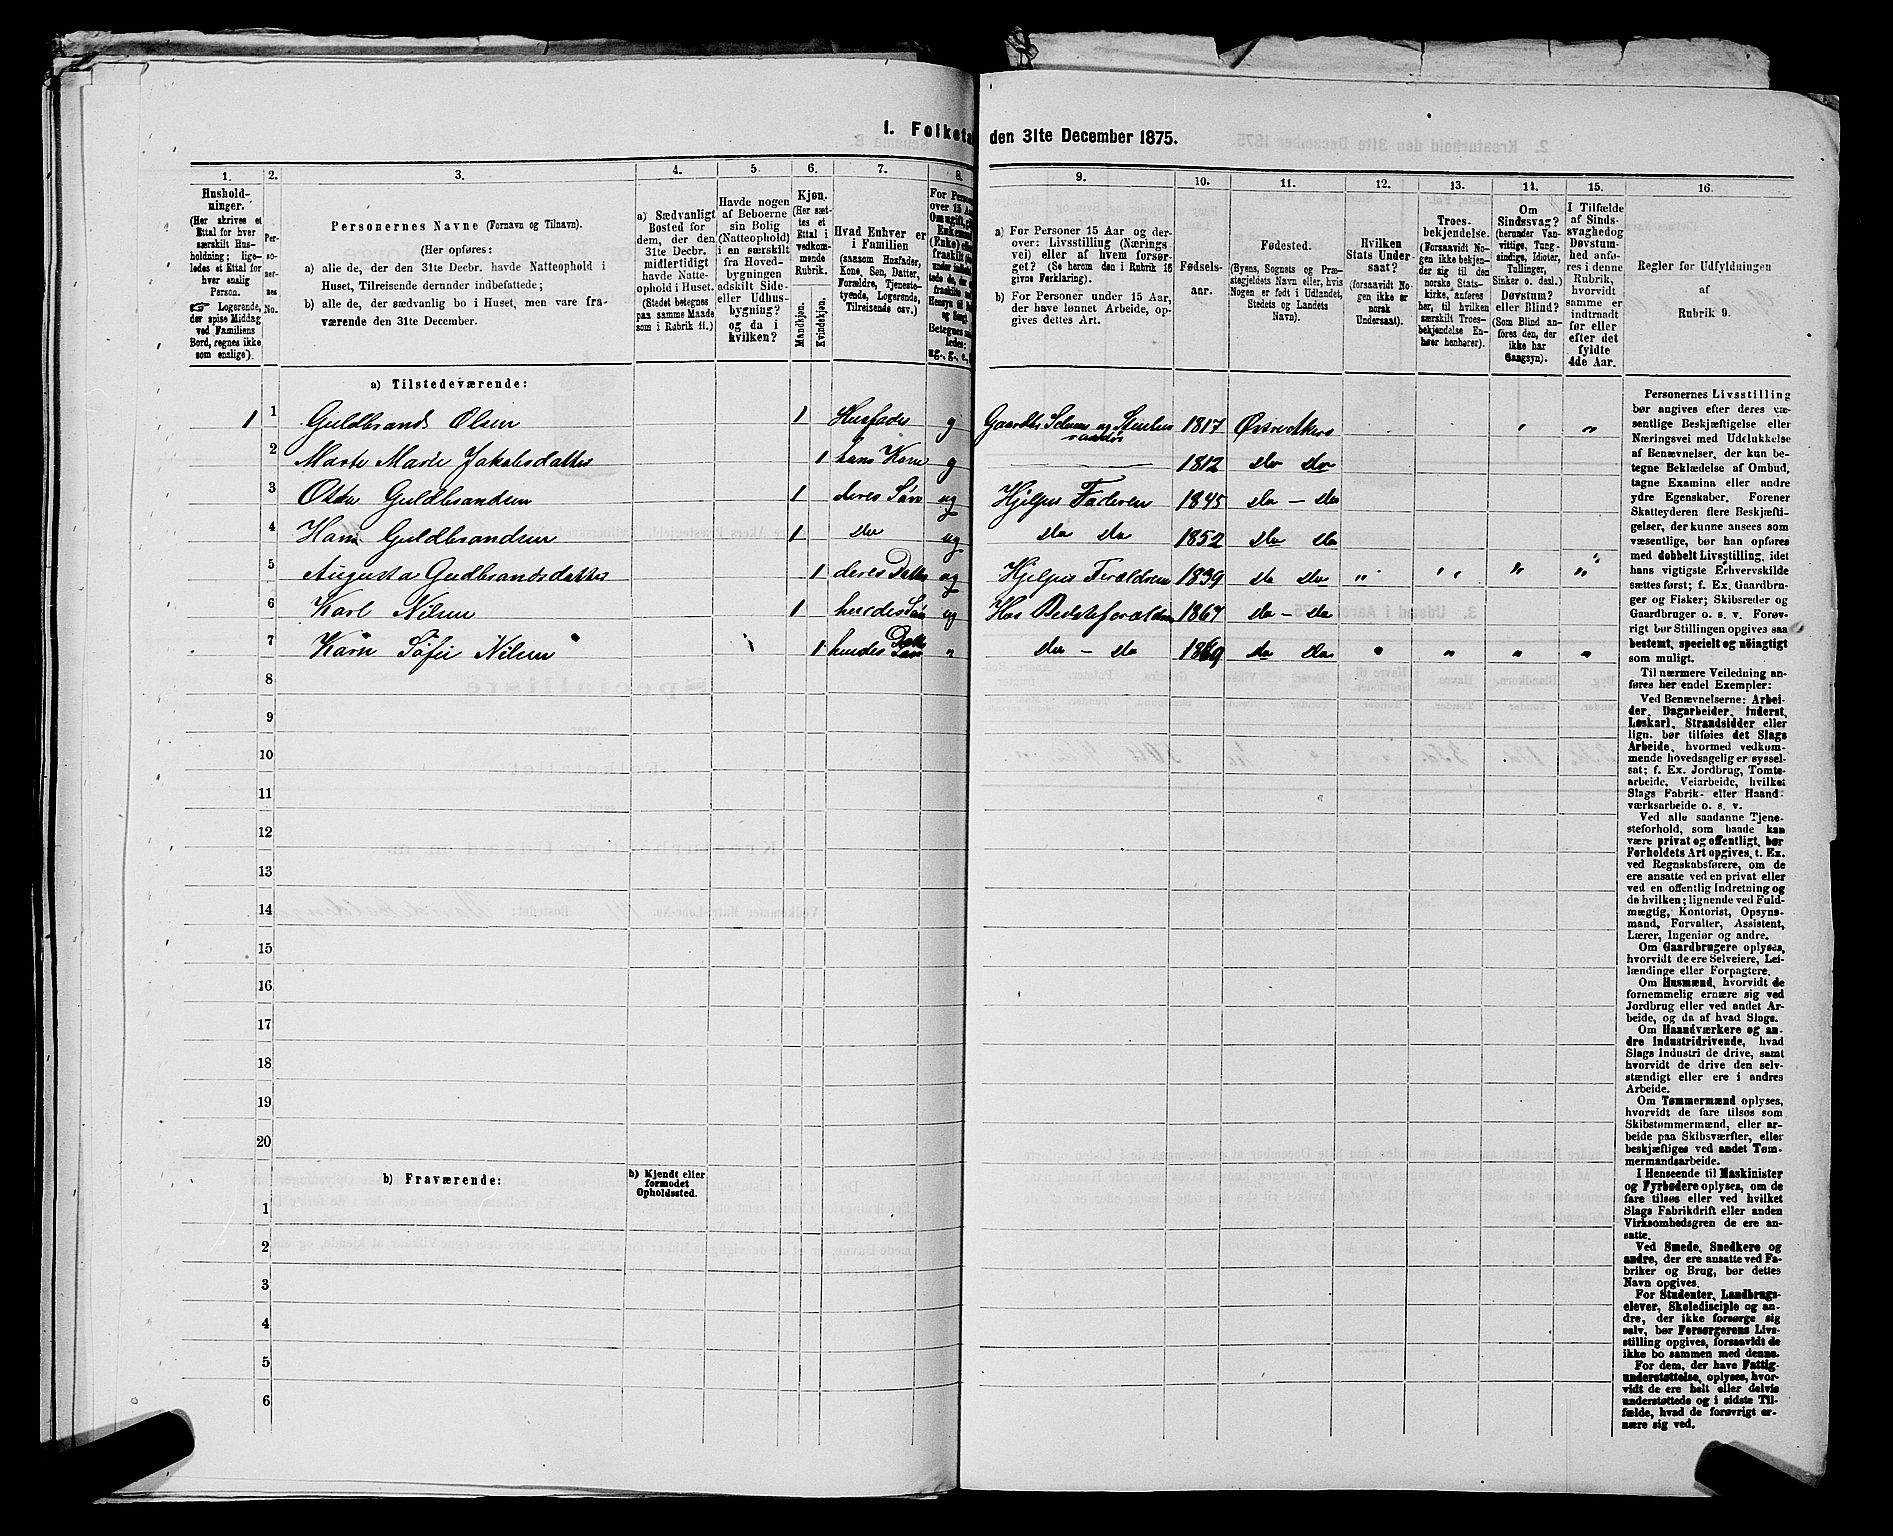 1. Folketa
den 31te December 1875.
1.
2.
3.
4.
5.
6.
7.
8.
9.
10.
11.
12.
13.
14.
15.
16.
Hushold-
ninger.
(Her skrives et
Ettal for hver
særskilt Hus-
holdning; lige-
ledes et Ettal for
hver enslig
Person.
Logerende,
der spise Middag
ved Familiens
Bord, regnes ikke
som enslige).
Per-
soner-
nes
No.
Personernes Navne (Fornavn og Tilnavn).
(Her opføres:
a) alle de, der den 31te Decbr. havde Natteophold i
Huset, Tilreisende derunder indbefattede;
b) alle de, der sædvanlig bo i Huset, men vare fra-
værende den 31te December.
a) Sædvanligt
Bosted for
dem, der den
31te Decbr.
midlertidigt
havde Natte-
ophold i Huset.
(Stedet betegnes
paa samme Maade
som i Rubrik 11.)
Havde nogen
af Beboerne
sin Bolig
(Natteophold)
i en særskilt
fra Hoved-
bygningen
adskilt Side-
eller Udhus-
bygning?
og da i
hvilken?
Kjøn.
(Her sæt-
tes et
Ettal i
vedkom-
mende
Rubrik.
Mandkjøn.
Kvindekjøn.
Hvad Enhver er
i Familien
(saasom Husfader,
Kone, Søn, Datter,
Forældre, Tjeneste-
tyende, Logerende,
Tilreisende osv.)
For Perso
over 15 Aar
Om ugift, gi
Enkemand
(Enke) elle
fraskilt
Betegnes
ledes:
ug., g., e.,
a) For Personer 15 Aar og der-
over: Livsstilling (Nærings
vei) eller af hvem forsør-
get? (Se herom den i Rubrik 16
givne Forklaring).
b) For Personer under 15 Aar,
der have lønnet Arbeide, op-
gives dettes Art.
Fødsels-
aar.
Fødested.
(Byens, Sognets og Præ-
stegjeldets Navn eller, hvis
Nogen er født i Udlandet,
Stedets og Landets
Navn).
Hvilken
Stats Under-
saat?
(forsaavidt No-
gen ikke er
norsk
Undersaat).
Troes-
bekjendelse.
(Forsaavidt No-
gen ikke bekjen-
der sig til den
norske Stats-
kirke, anføres
her, til hvilken
særskilt Troes-
bekjendelse En-
hver henhører).
Om
Sindssvag?
(herunder Van-
vittige, Tung-
sindige, Idioter,
Tullinger,
Sinker o. desl.)
Døvstum?
eller Blind?
(Som Blind an-
føres den, der
ikke har
Gangsyn).
I Tilfælde
af Sinds-
svaghed og
Døvstum-
hed anfø-
res i denne
Rubrik,
hvorvidt
samme er
indtraadt
før eller
efter det
fyldte
4de Aar.
Regler for Udfyldningen
af
Rubrik 9.
a) Tilstedeværende:
1 1 Guldbrand Olsen 1 Husfader g Gaardbr Selveier og 1817 Østre Akers
2 Marte Marie Jakobsdatter 1 hans Kone g — 1812 do do
3 Otto Guldbrandsen 1 deres Søn ug Hjelper Faderen 1845 do – do
4 Hans Guldbrandsen 1 do ug do do 1852 do do
5 Augusta Gudbrandsdatter 1 deres Datter ug Hjelper Forældrene 1839 do do " " " " "
6 Karl Nilsen 1 hendes Søn ug Hos Bedsteforældrene 1867 do – do
7 Karn Sofie Nilsen 1 hendes Datter Søn " do – do 1869 do do " " " "
8
9
10
11
12
13
14
15
16
17
18
19
20
b) Fraværende:
b) Kjendt eller
formodet
Opholdssted.
1
2
3
4
5
6
Personernes Livsstilling
bør angives efter deres væ-
sentlige Beskjæftigelse eller
Næringsvei med Udelukkelse
af Benævnelser, der kun be-
tegne Beklædelse af Ombud,
tagne Examina eller andre
ydre Egenskaber. Forener
Skatteyderen flere Beskjæfti-
gelser, der kunne ansees som
væsentlige, bør han opføres
med dobbelt Livsstilling, idet
hans vigtigste Erhvervskilde
sættes først; f. Ex. Gaardbru-
ger og Fisker; Skibsreder og
Gaardbruger o. s. v. Forøv-
rigt bør Stillingen opgives saa
bestemt, specielt og nöiagtigt
som muligt.
Til nærmere Veiledning an-
føres her endel Exempler:
Ved Benævnelserne: Arbei-
der, Dagarbeider, Inderst,
Løskarl, Strandsidder eller
lign. bør tilføies det Slags
Arbeide, hvormed vedkom-
mende hovedsagelig er syssel-
sat; f. Ex. Jordbrug, Tomte-
arbeide, Veiarbeide, hvilket
Slags Fabrik- eller Haand-
værksarbeide o. s. v.
Ved alle saadanne Tjene-
steforhold, som baade kan
være privat og offentligt, bør
Forholdets Art opgives, t. Ex.
ved Regnskabsførere, om de
ere ansatte ved en privat eller
ved en offentlig Indretning og
da hvilken; lignende ved Fuld-
mægtig, Kontorist, Opsyns-
mand, Forvalter, Assistent,
Lærer, Ingeniør og andre.
Om Gaardbrugere oplyses,
hvorvidt de ere Selveiere, Lei-
lændinge eller Forpagtere.
Om Husmænd, hvorvidt de
fornemmelig ernære sig ved
Jordbrug eller ved andet Ar-
beide, og da af hvad Slags.
Om Haandværkere og an-
dre Industridrivende, hvad
Slags Industri de drive, samt
hvorvidt de drive den selv-
stændigt eller ere i andres
Arbeide.
Om Tømmermænd oplyses,
hvorvidt de fare tilsøs som
Skibstømmermænd, eller ar-
beide paa Skibsværfter, eller
beskjæftiges ved andet Tøm-
mermandsarbeide.
I Henseende til Maskinister
og Fyrbødere oplyses, om de
fare tilsøs eller ved hvilket
Slags Fabrikdrift eller anden
Virksomhedsgren de ere an-
satte.
Ved Smede, Snedkere og
andre, der ere ansatte ved Fa-
briker og Brug, bør dettes
Navn opgives.
For Studenter, Landbrugs-
elever, Skoledisciple og an-
dre, der ikke forsørge sig
selv, bør Forsørgerens Livs-
stilling opgives, forsaavidt de
ikke bo sammen med denne.
For dem, der have Fattig-
understøttelse, oplyses, hvor-
vidt de ere helt eller delvis
understøttede og i sidste Til-
fælde, hvad de forøvrigt er-
nære sig ved.